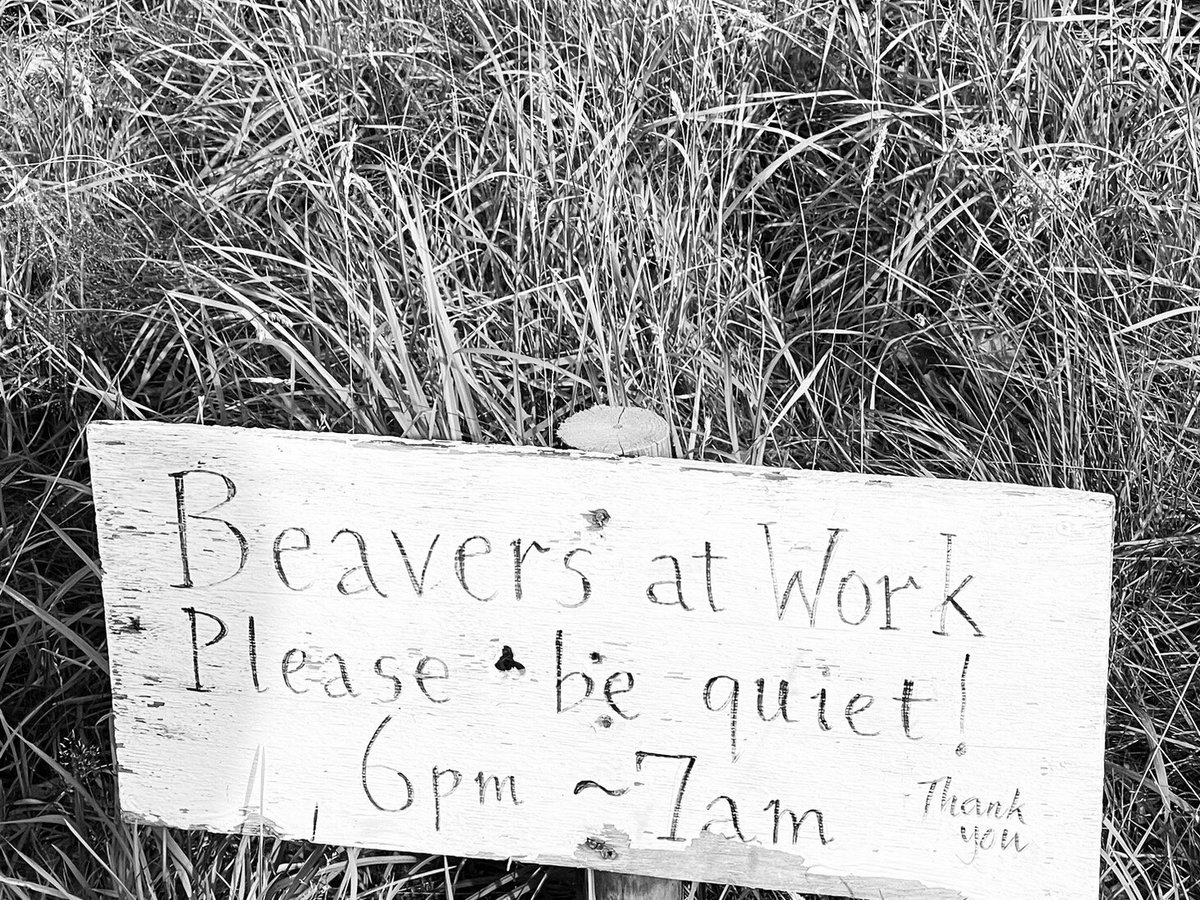 Beavers at Work
Please be quiet!
6pm ~ 7am
Thank
you